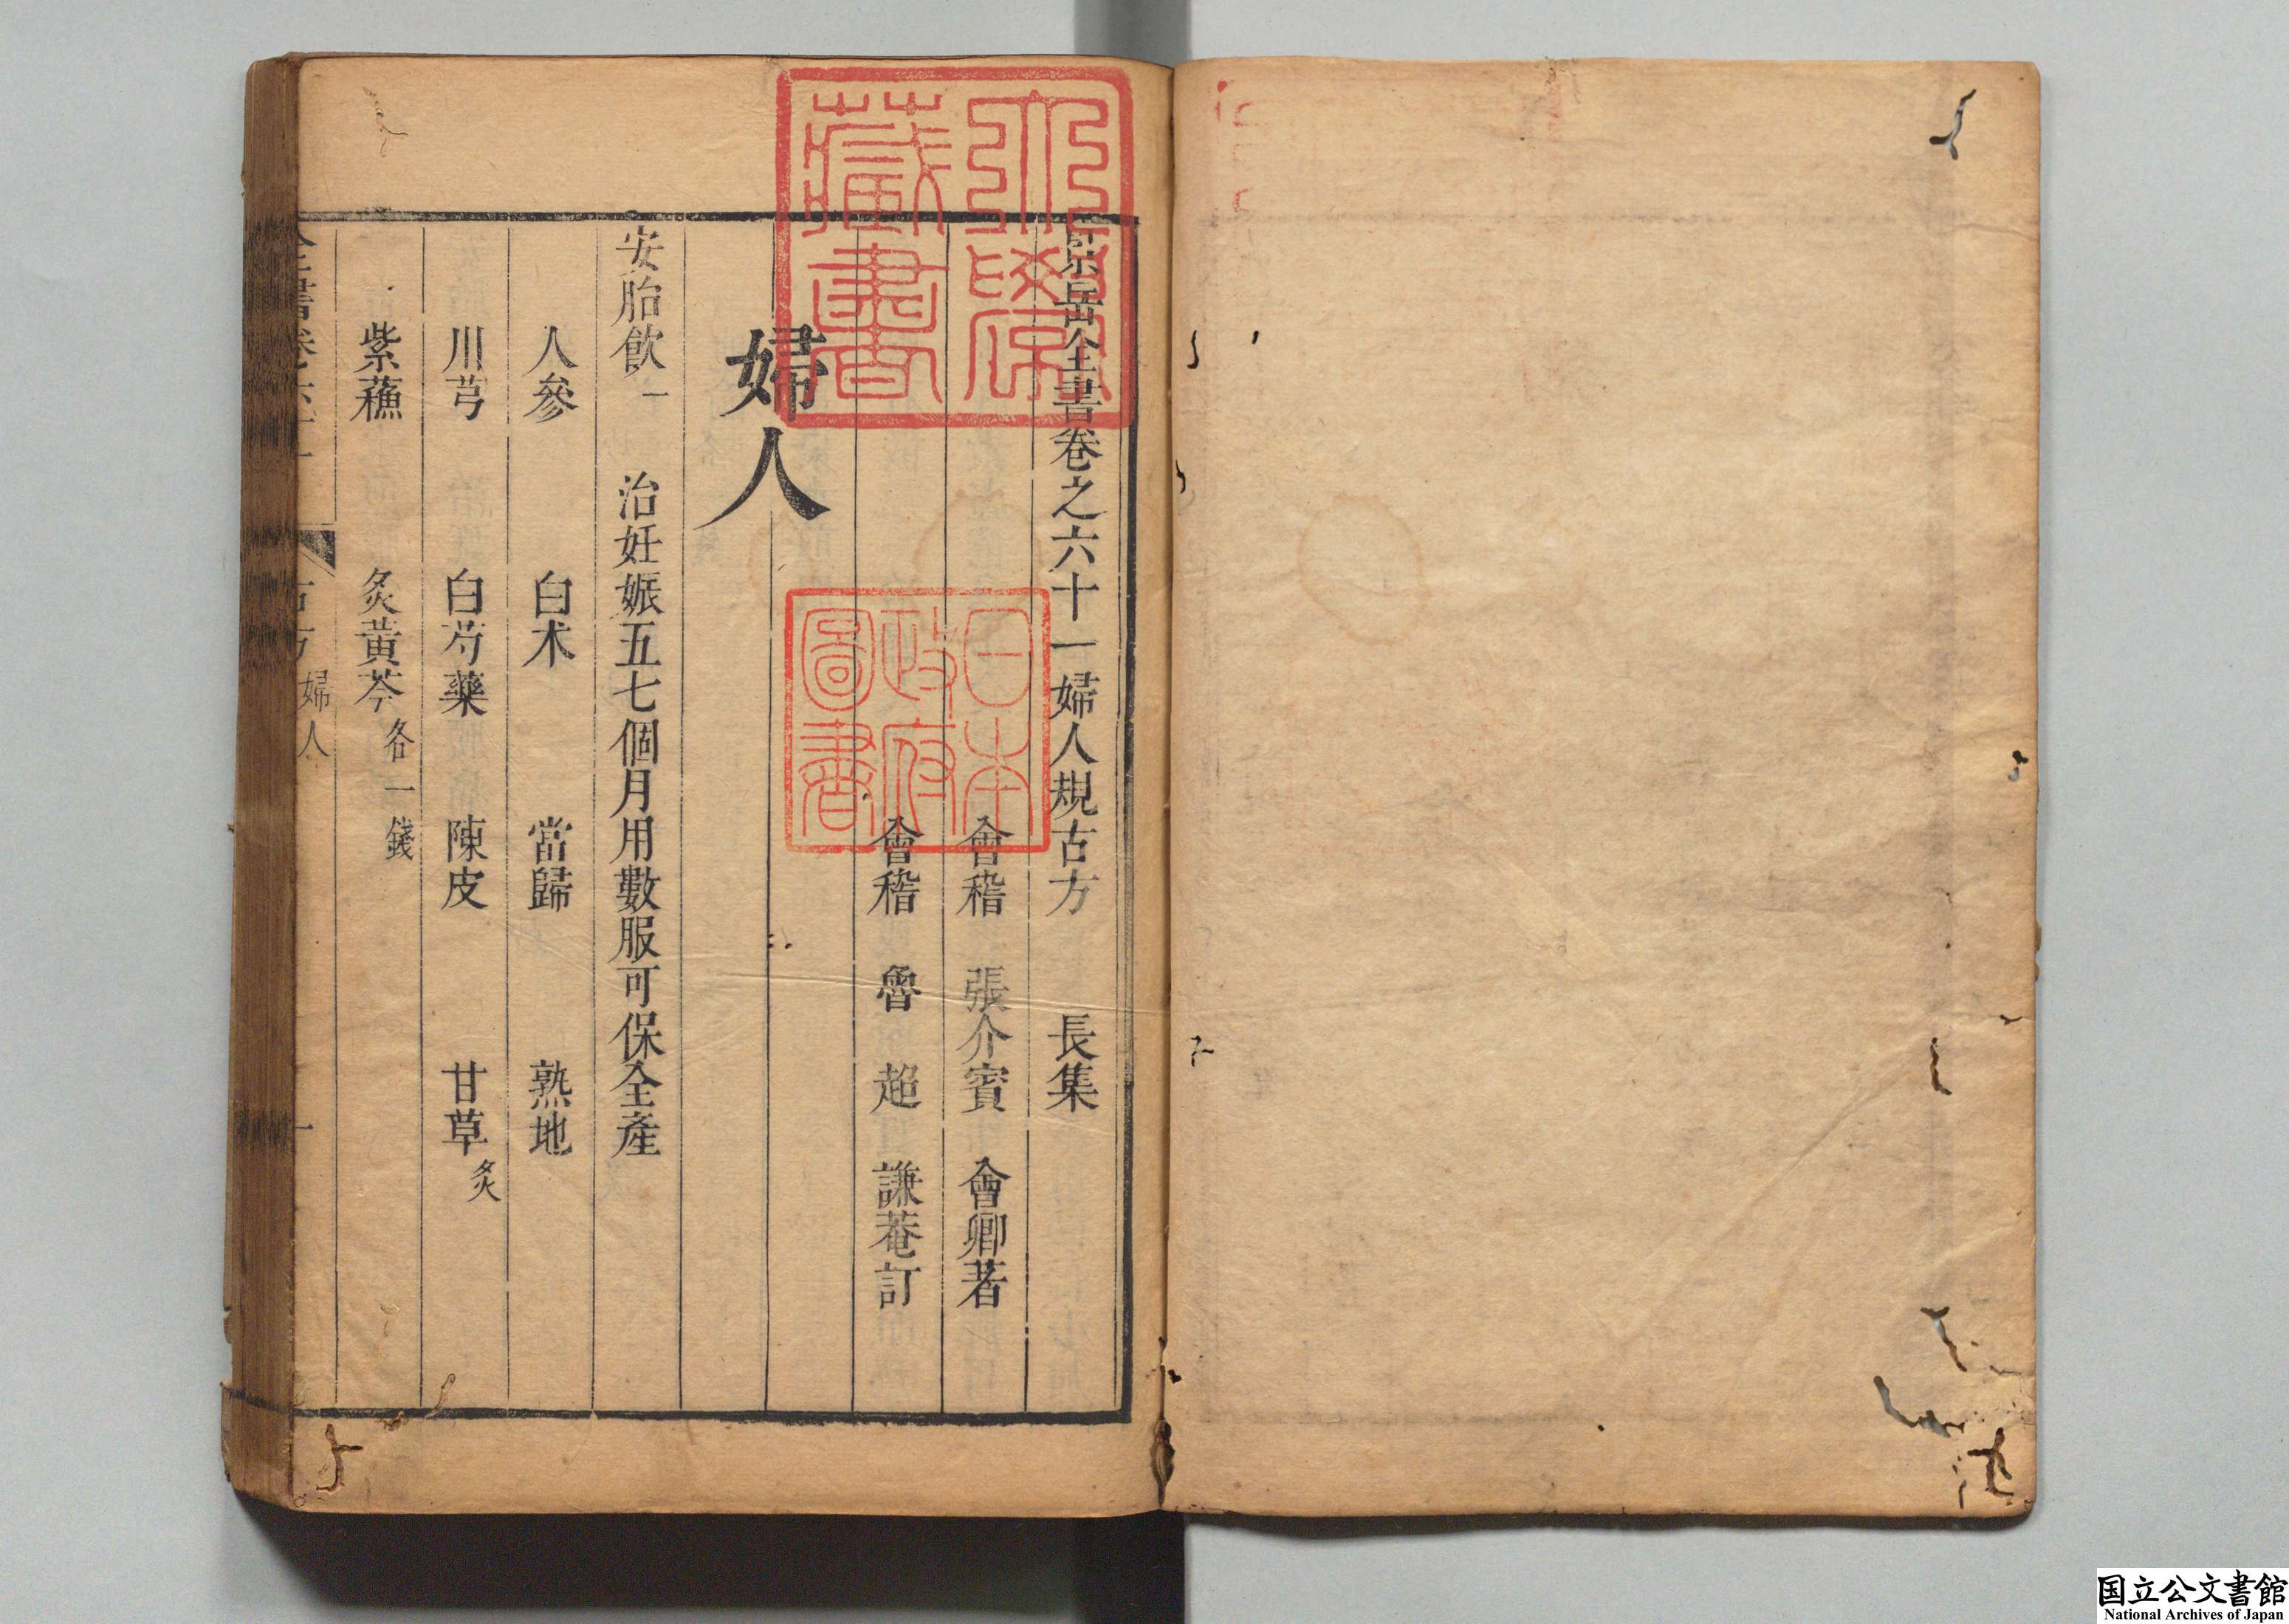 景岳全書卷之六十一婦人規古方　長集
會稽　張介賓　會卿著
會稽　魯　超　謙菴訂
婦人
安胎飲一　治妊娠五七個月用數服可保全產
人參　白术　當歸　熟地
川芎　白芍藥　陳皮　甘草炙
紫蘓　炙黃芩各一錢
全書卷六十一　古方　婦人　一
大學藏書
日本政府圖書
国立公文書館
National Archives of Japan